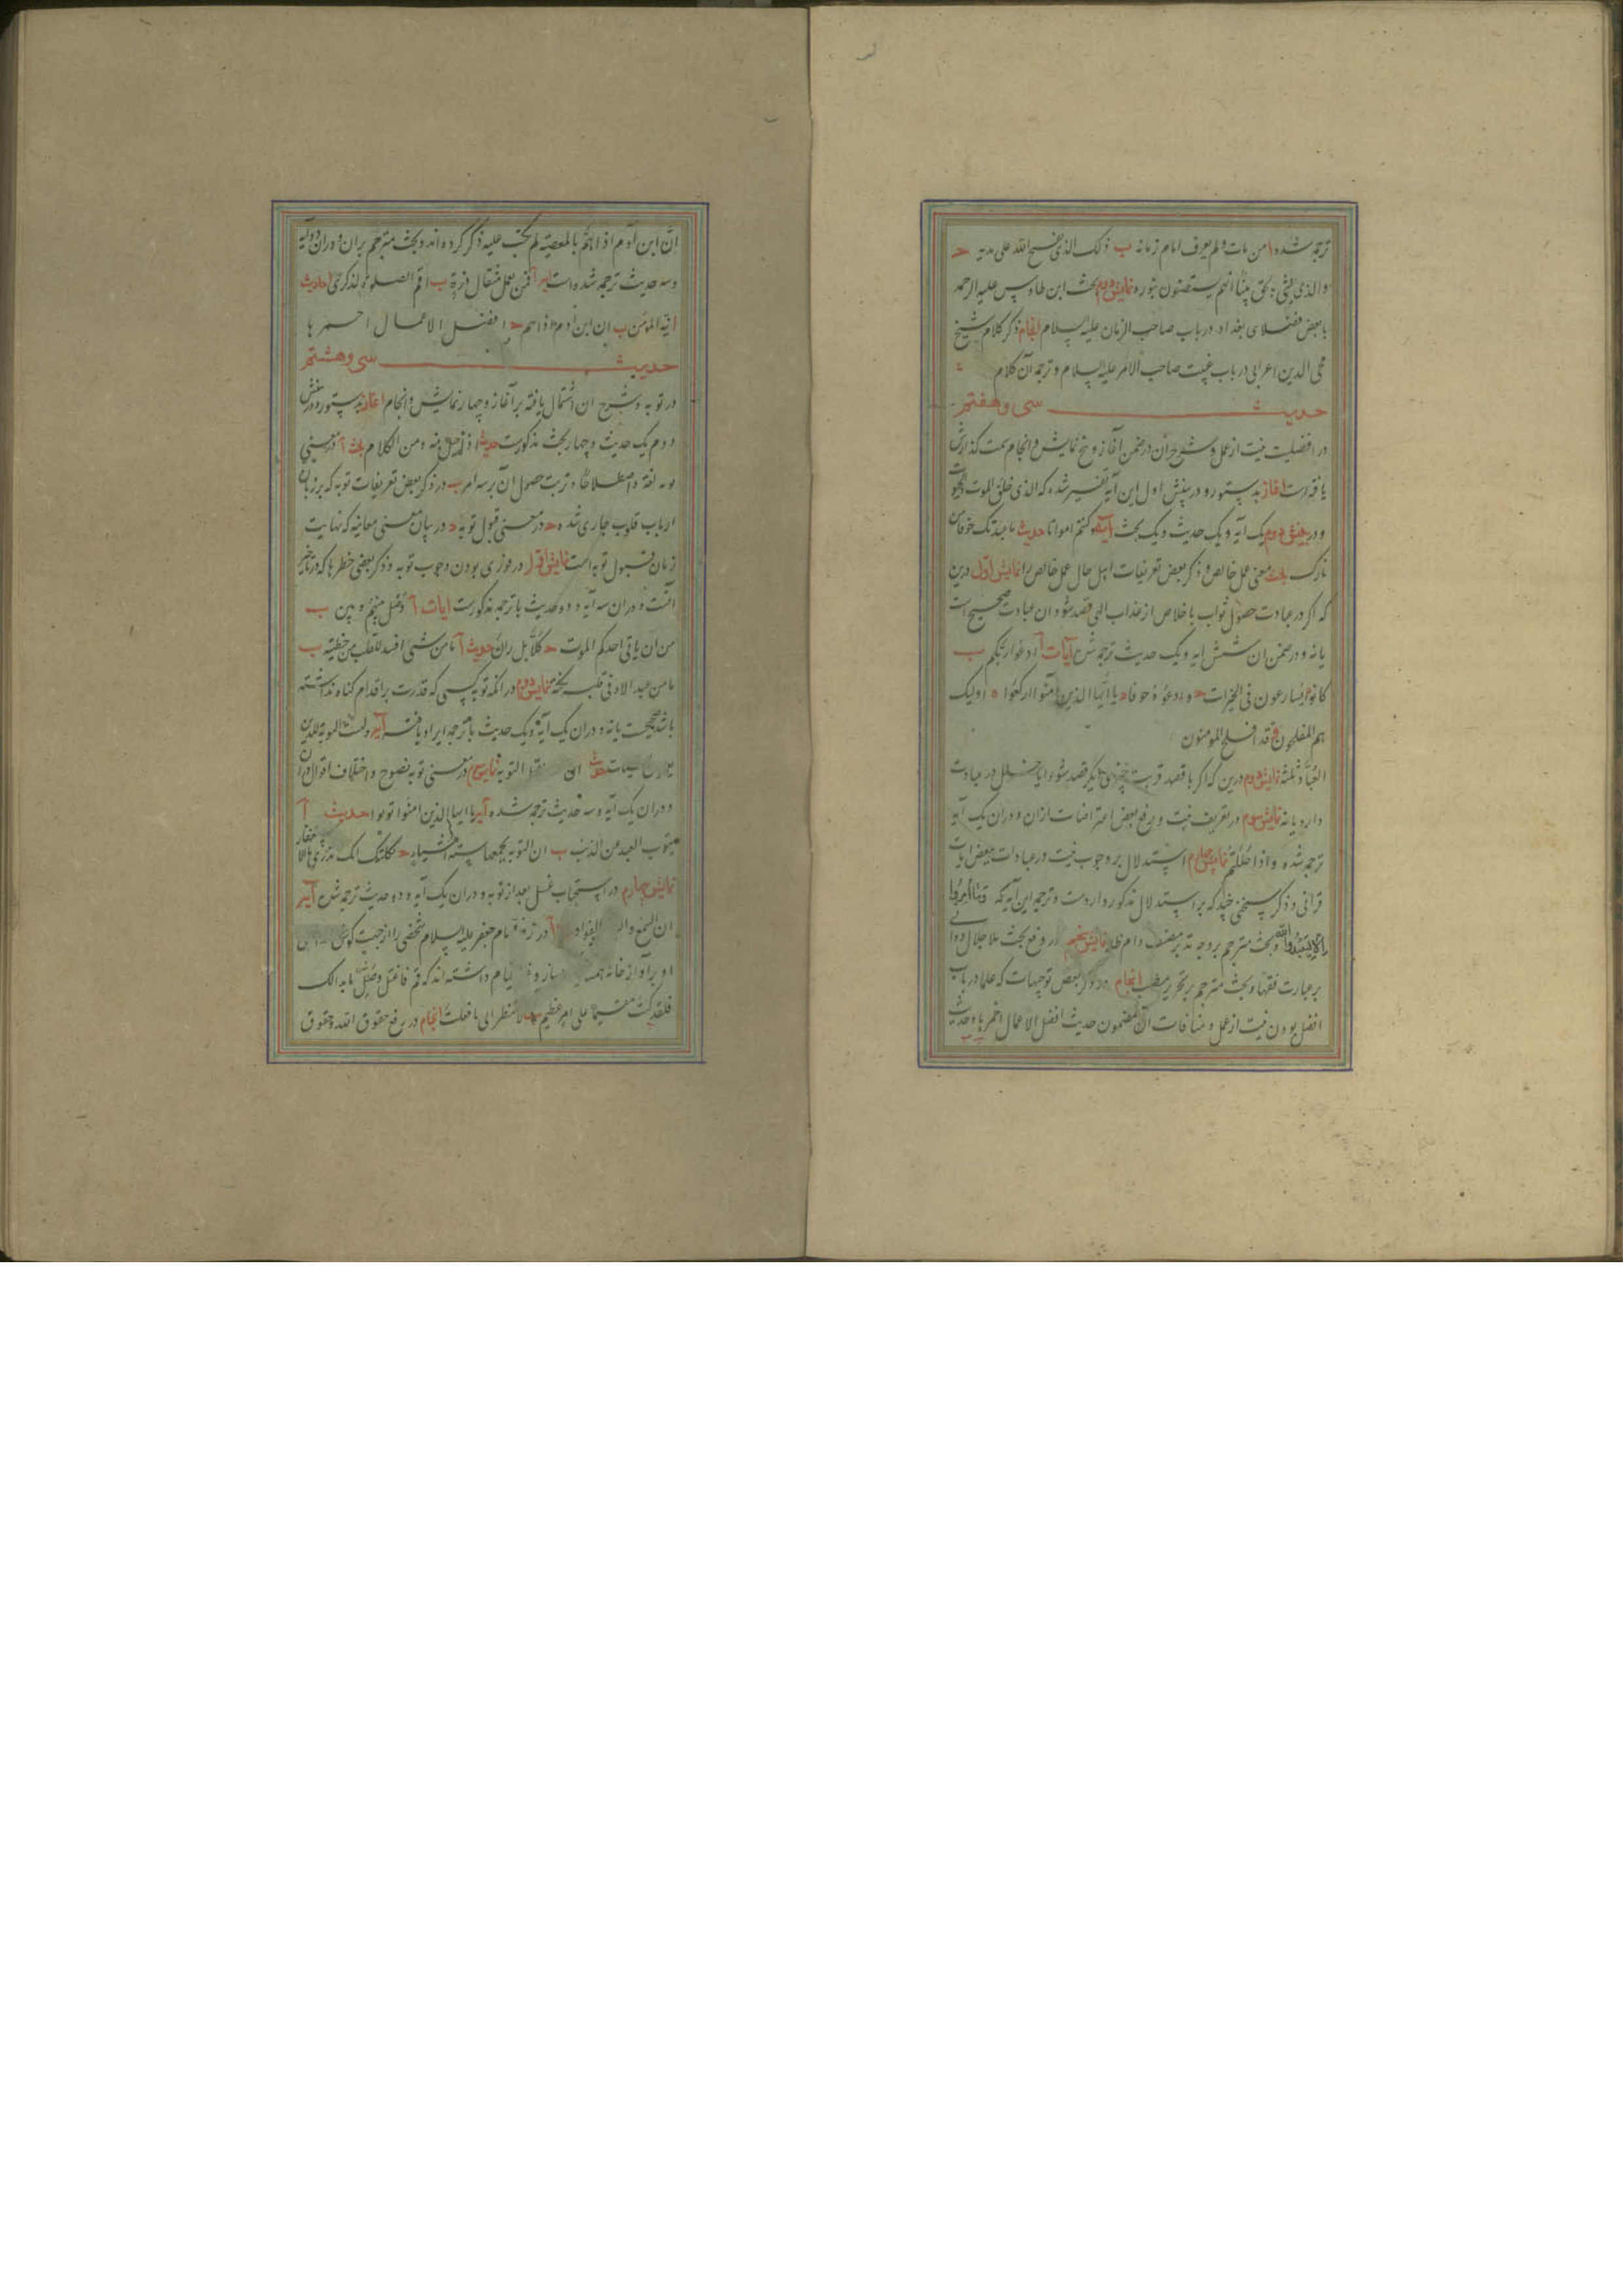 ترجمه شده ا من مات ولم یعرف امام زمانه ب ذلک الذی یفتح الله علی یدیه ح
والذی بعثنی بالحق نبیا انهم یستضیئون بنوره نمایش دوم بحث ابن طاوس علیه الرحمه
با بعض فضلای بغداد در باب صاحب الزمان علیه السلام انجام ذکر کلام شیخ
محی الدین اعرابی در باب غیبت صاحب الامر علیه السلام و ترجمه آن کلام
حدیث سی و هفتم
در افضلیت نیت از عمل و شرح آن در ضمن آغاز و پنج نمایش و انجام سمت گذارش
یافته است اغاز بدستور و در بینش اول این آیه تفسیر شده که الذی خلق الموت والحیوة
و در بینش دوم یک ایه و یک حدیث و یک بحث آیه و کنتم امواتا حدیث ما عبدتک خوفا من
نارک بحث معنی عمل خالص و ذکر بعض تعریفات اهل حال عمل خالص را نمایش اول درین
که اگر در عبادت حصول ثواب یا خلاص از عذاب الهی قصد شود ان عبادت صحیح است
یا نه و در ضمن ان شش ایه و یک حدیث ترجمه شده آیات آ ادعوا ربکم ب
کانوا یسارعون فی الخیرات ح وادعوه خوفا د یا ایها الذین آمنوا ارکعوا ه اولیک
هم المفلحون و قد افلح المومنون
العباد ثلثة نمایش دوم درین که اگر با قصد قربت چیزی دیگر قصد شود ایا خلل در عبادت
دارد یا نه نمایش سوم در تعریف نیت و رفع بعض اعتراضات ازان و دران یک آیه
ترجمه شده و اذا حللتم نمایش چهارم استدلال بر وجوب نیت در عبادات ببعض ایات
قرآنی و ذکر سخنی چند که بر استدلال مذکور وارد است و ترجمه این آیه که وما امروا
الا لیعبدوا الله و بحث مترجم بر وجه تدبر مصنف دام ظله نمایش پنجم در دفع بحث ملا جلال دوانی
بر عبارت فقها و بحث مترجم بر تحریر مطلب انجام در ذکر بعض توجیهات که علما در باب
افضل بودن نیت از عمل و منافات آن بمضمون حدیث افضل الاعمال احمزها و حدیث
ان ابن آدم اذا هم بالمعصیة لم یکتب علیه ذکر کرده اند و بحث مترجم بران و دران دو آیه
و سه حدیث ترجمه شده است ایه آ فمن یعمل مثقال ذرة ب اقم الصلوة لذکری احادیث
ا نیة المومن ب ان ابن ادم اذا هم ح افضل الاعمال احمزها
حدیث سی و هشتم
در توبه و شرح ان اشتمال یافته بر آغاز و چهار نمایش و انجام اغاز بدستور و در بینش
دوم یک حدیث و چهار بحث مذکورست حدیث اذ الرجل منه ومن الکلام بحث آ در معنی
توبه لغة و اصطلاحا و ترتب حصول آن بر سه امر ب در ذکر بعض تعریفات توبه که بر زبان
ارباب قلوب جاری شده ح در معنی قبول توبه د در بیان معنی معاینه که نهایت
زمان قبول توبه است نمایش اول در فوری بودن وجوب توبه و ذکر بعضی خطرها که در تاخیر
آنست و دران سه آیه و دو حدیث با ترجمه مذکورست ایات آ و حیل بینهم و بین ب
من ان یاتی احدکم الموت ح کلا بل ران حدیث آ ما من شیء افسد للقلب من خطیئة ب
ما من عبد الا و فی قلبه نکتة نمایش دوم در انکه توبه کسی که قدرت بر اقدام کناه نداشته
باشد صحیحست یا نه و دران یک آیه و یک حدیث با ترجمه ایراد یافته آیه ولیست التوبة للذین
یعملون السیئات حدیث ان التوبة نمایش سوم در معنی توبه نصوح و اختلاف اقوال در آن
و دران یک آیه و سه حدیث ترجمه شده آیه یا ایها الذین امنوا توبوا حدیث آ
یتوب العبد من الذنب ب ان التوبة یجمعها ستة اشیاء ح ثکلتک امک
نمایش چهارم در استحباب غسل بعد از توبه و دران یک آیه و دو حدیث ترجمه شده آیه
ان السمع والبصر والفؤاد آ در امام جعفر علیه السلام شخصی را از جهت گوش
او بر آواز خانه همسایه داشته اند که قم فاغتسل وصل ما بدا لک
فلقد کنت مقیما علی امر عظیم ب لا تنظر الی ما فعلت انجام در رفع حقوق الله و حقوق